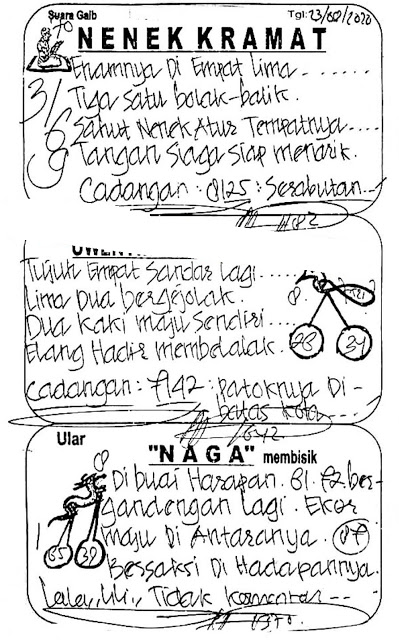 Suara Gaib
Tgl: 23/02/2020
NENEK KRAMAT
Enamnya Di Empat Lima ......
Tiga satu bolak-balik.
Sahut Nenek Atur Tempatnya....
Tangan Siaga Siap menarik.
Cadangan: 8125: Serabutan
Tujuh Empat Sandar Lagi.....
Lima Dua bergejolak.
Dua kaki maju Sendiri....
Elang Hadir membelalak.
28 34
Cadangan: 7142: Patoknya Di-
batas kota
1642
Ular
"NAGA" membisik
Dibuai Harapan. 81. 72 ber-
gandengan lagi. Ekor
maju Di Antaranya. 87
35 39
Bersaksi Di Hadapannya.
Tidak Komentar